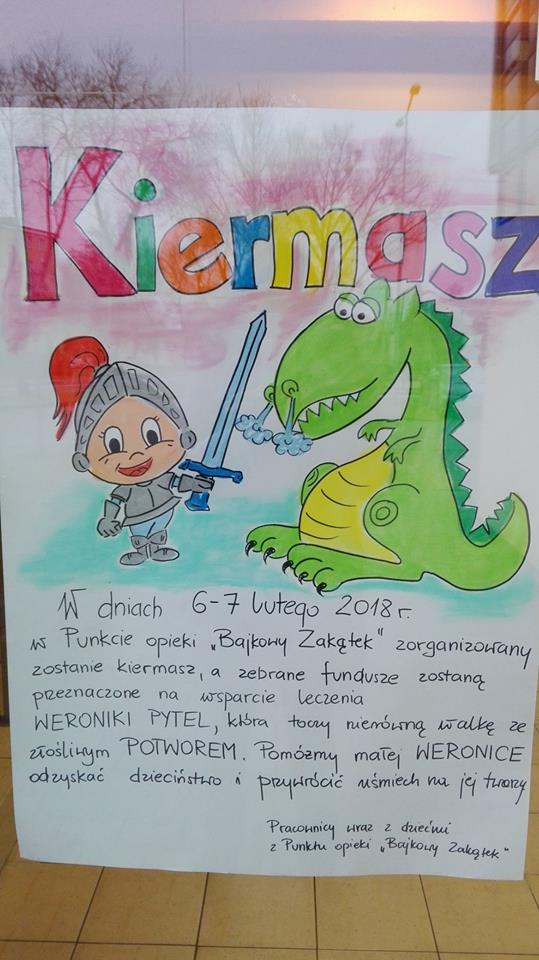 Kiermasz
W dniach 6-7 lutego 2018 r.
w Punkcie opieki „Bajkowy Zakątek" zorganizowany
zostanie kiermasz, a zebrane fundusze zostaną
przeznaczone na wsparcie leczenia
WERONIKI PYTEL, która toczy nierówną walkę ze
złośliwym POTWOREM. Pomóżmy małej WERONICE
odzyskać dzieciństwo i przywrócić uśmiech na jej twarzy
Pracownicy wraz z dziećmi
z Punktu opieki „Bajkowy Zakątek"